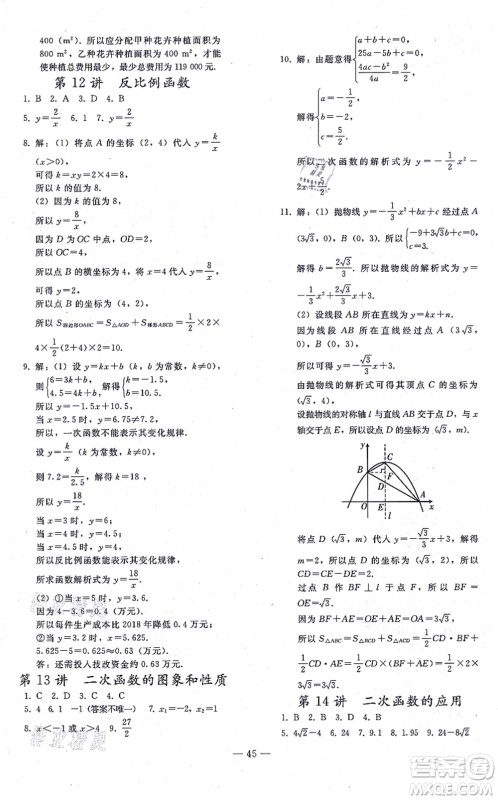 400（m²）. 所以应分配甲种花卉种植面积为
800 m²，乙种花卉种植面积为 400 m²，才能
使种植总费用最少，最少总费用为 119 000 元.
第 12 讲 反比例函数
1. B 2. A 3. D 4. B
5. y=2/x 6. 1 7. y=2/x
8. 解：（1）将点 A 的坐标（2，4）代入 y=k/x
（x＞0），
可得 k=xy=2×4=8，
所以 k 的值为 8.
（2）因为 k 的值为 8，
所以 y=8/x，
因为 D 为 OC 中点，OD=2，
所以 OC=4，
所以点 B 的横坐标为 4，将 x=4 代入 y=8/x，
可得 y=2，
所以点 B 的坐标为（4，2），
所以 S四边形OABC=S△AOD+S梯形ABCD=1/2×2×
4+1/2×（2+4）×2=10.
9. 解：（1）设 y=kx+b（k，b 为常数，k≠0），
则{6=3k+b，4.5=4k+b，解得{k=-1.5，b=10.5，
所以 y=-1.5x+10.5，
当 x=2.5 时，y=6.75≠7.2，
所以，一次函数不能表示其变化规律.
设 y=k/x（k 为常数，k≠0），
则 7.2=k/2.5，解得 k=18，
所以 y=18/x，
当 x=3 时，y=6；
当 x=4 时，y=4.5；
当 x=4.5 时，y=4；
所以反比例函数能表示其变化规律，
所求函数解析式为 y=18/x.
（2）①当 x=5 时，y=3.6，
因为 4-3.6=0.4（万元），
所以每件生产成本比 2018 年降低 0.4 万元.
②当 y=3.2 时，x=5.625，
5.625-5=0.625≈0.63（万元），
答：还需投入技改资金约 0.63 万元.
第 13 讲 二次函数的图象和性质
1. C 2. D 3. D 4. C
5. 4 6. -1（答案不唯一） 7. x₁=-2，x₂=1
8. x＜-1 或 x＞4 9. 27/2
10. 解：由题意得{c=5/2，25a-5b+c=0，(4ac-b²)/4a=9/2，
解得{a=-1/2，b=-2，c=5/2，
所以二次函数的解析式为 y=-1/2x²-
2x+5/2.
11. 解：（1）抛物线 y=-1/3x²+bx+c 经过点 A
（3√3，0）和点 B（0，3），所以{-9+3√3b+c=0，c=3.
解得 b=2√3/3，所以抛物线的解析式为 y=
-1/3x²+2√3/3x+3.
（2）设线段 AB 所在直线为 y=kx+n.
因为抛物线 y=-1/3x²+2√3/3x+3 经过点 A（3√3，
0），B（0，3），所以 AB 解析式为 y=-√3/3x+3.
由抛物线的解析式可得其顶点 C 的坐标为
（√3，4）.
设抛物线的对称轴 l 与直线 AB 交于点 D，与 x
轴交于点 E，所以设点 D 的坐标为（√3，m）.
y
C
B
F
D
O
E
A
x
l
将点 D（√3，m）代入 y=-√3/3x+3，解得
m=2，所以 D（√3，2），所以 CD=CE-DE=2.
过点 B 作 BF⊥l 于点 F，所以 BF=OE=√3.
因为 BF+AE=OE+AE=OA=3√3，
所以 S△ABC=S△BCD+S△ACD=1/2CD·BF+
1/2CD·AE=1/2CD·（BF+AE）=1/2×2×
3√3=3√3.
第 14 讲 二次函数的应用
1. 4√2-4 2. B 3. B 4. B 5. 4√2
— 45 —